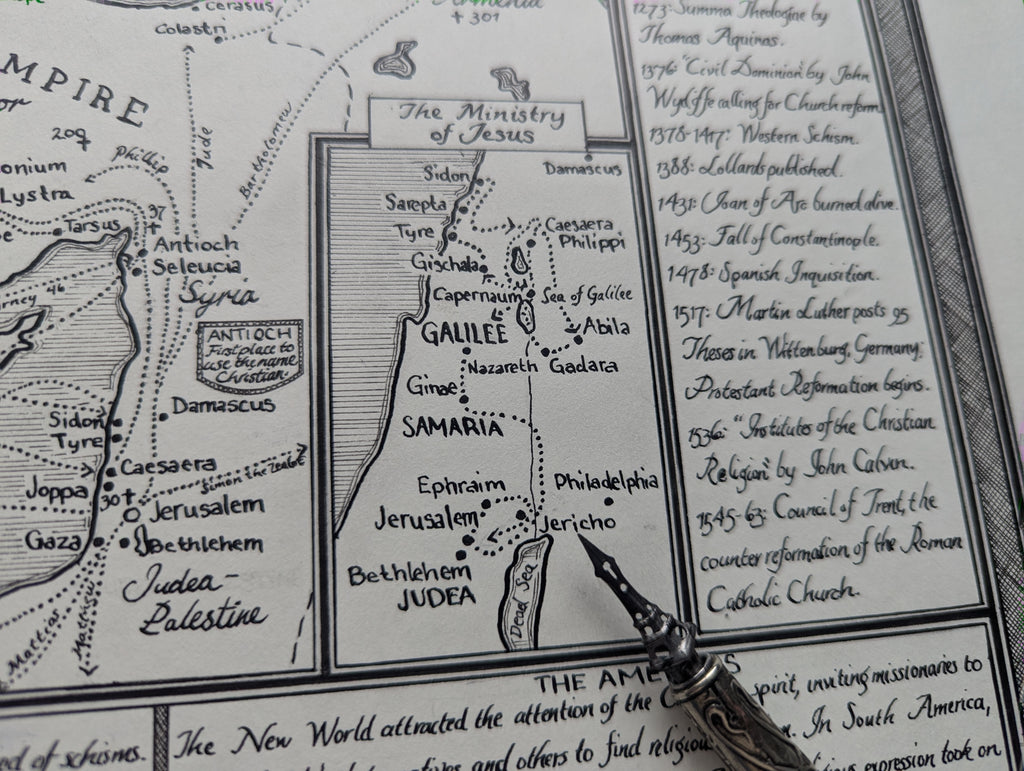 Cerasus
Colastri
Armenia
+ 301
MPIRE
or
209
Jude
Bartholomew
Phillip
onium
Lystra
37
Tarsus
Antioch
Seleucia
Syria
46
ANTIOCH
First place to
use the name
Christian.
Damascus
Sidon
Tyre
Caesaera
Simon the Zealot
Joppa
30+
Jerusalem
Gaza
Bethlehem
Judea-
Palestine
Mattias
The Ministry
of Jesus
Damascus
Sidon
Sarepta
Tyre
Caesaera
Philippi
Gischala
Capernaum
Sea of Galilee
GALILEE
Abila
Nazareth
Gadara
Ginae
SAMARIA
Ephraim
Philadelphia
Jerusalem
Jericho
Bethlehem
JUDEA
Dead Sea
1273: Summa Theologine by
Thomas Aquinas.
1376: "Civil Dominion" by John
Wycliffe calling for Church reform.
1378-1417: Western Schism.
1388: Lollards published.
1431: Joan of Arc burned alive.
1453: Fall of Constantinople.
1478: Spanish Inquisition.
1517: Martin Luther posts 95
Theses in Wittenburg, Germany:
Protestant Reformation begins.
1536: "Institutes of the Christian
Religion" by John Calvin.
1545-63: Council of Trent, the
counter reformation of the Roman
Catholic Church.
ed of schisms.
THE AME S
The New World attracted the attention of the spirit, inviting missionaries to
and others to find religious In South America,
expression took on